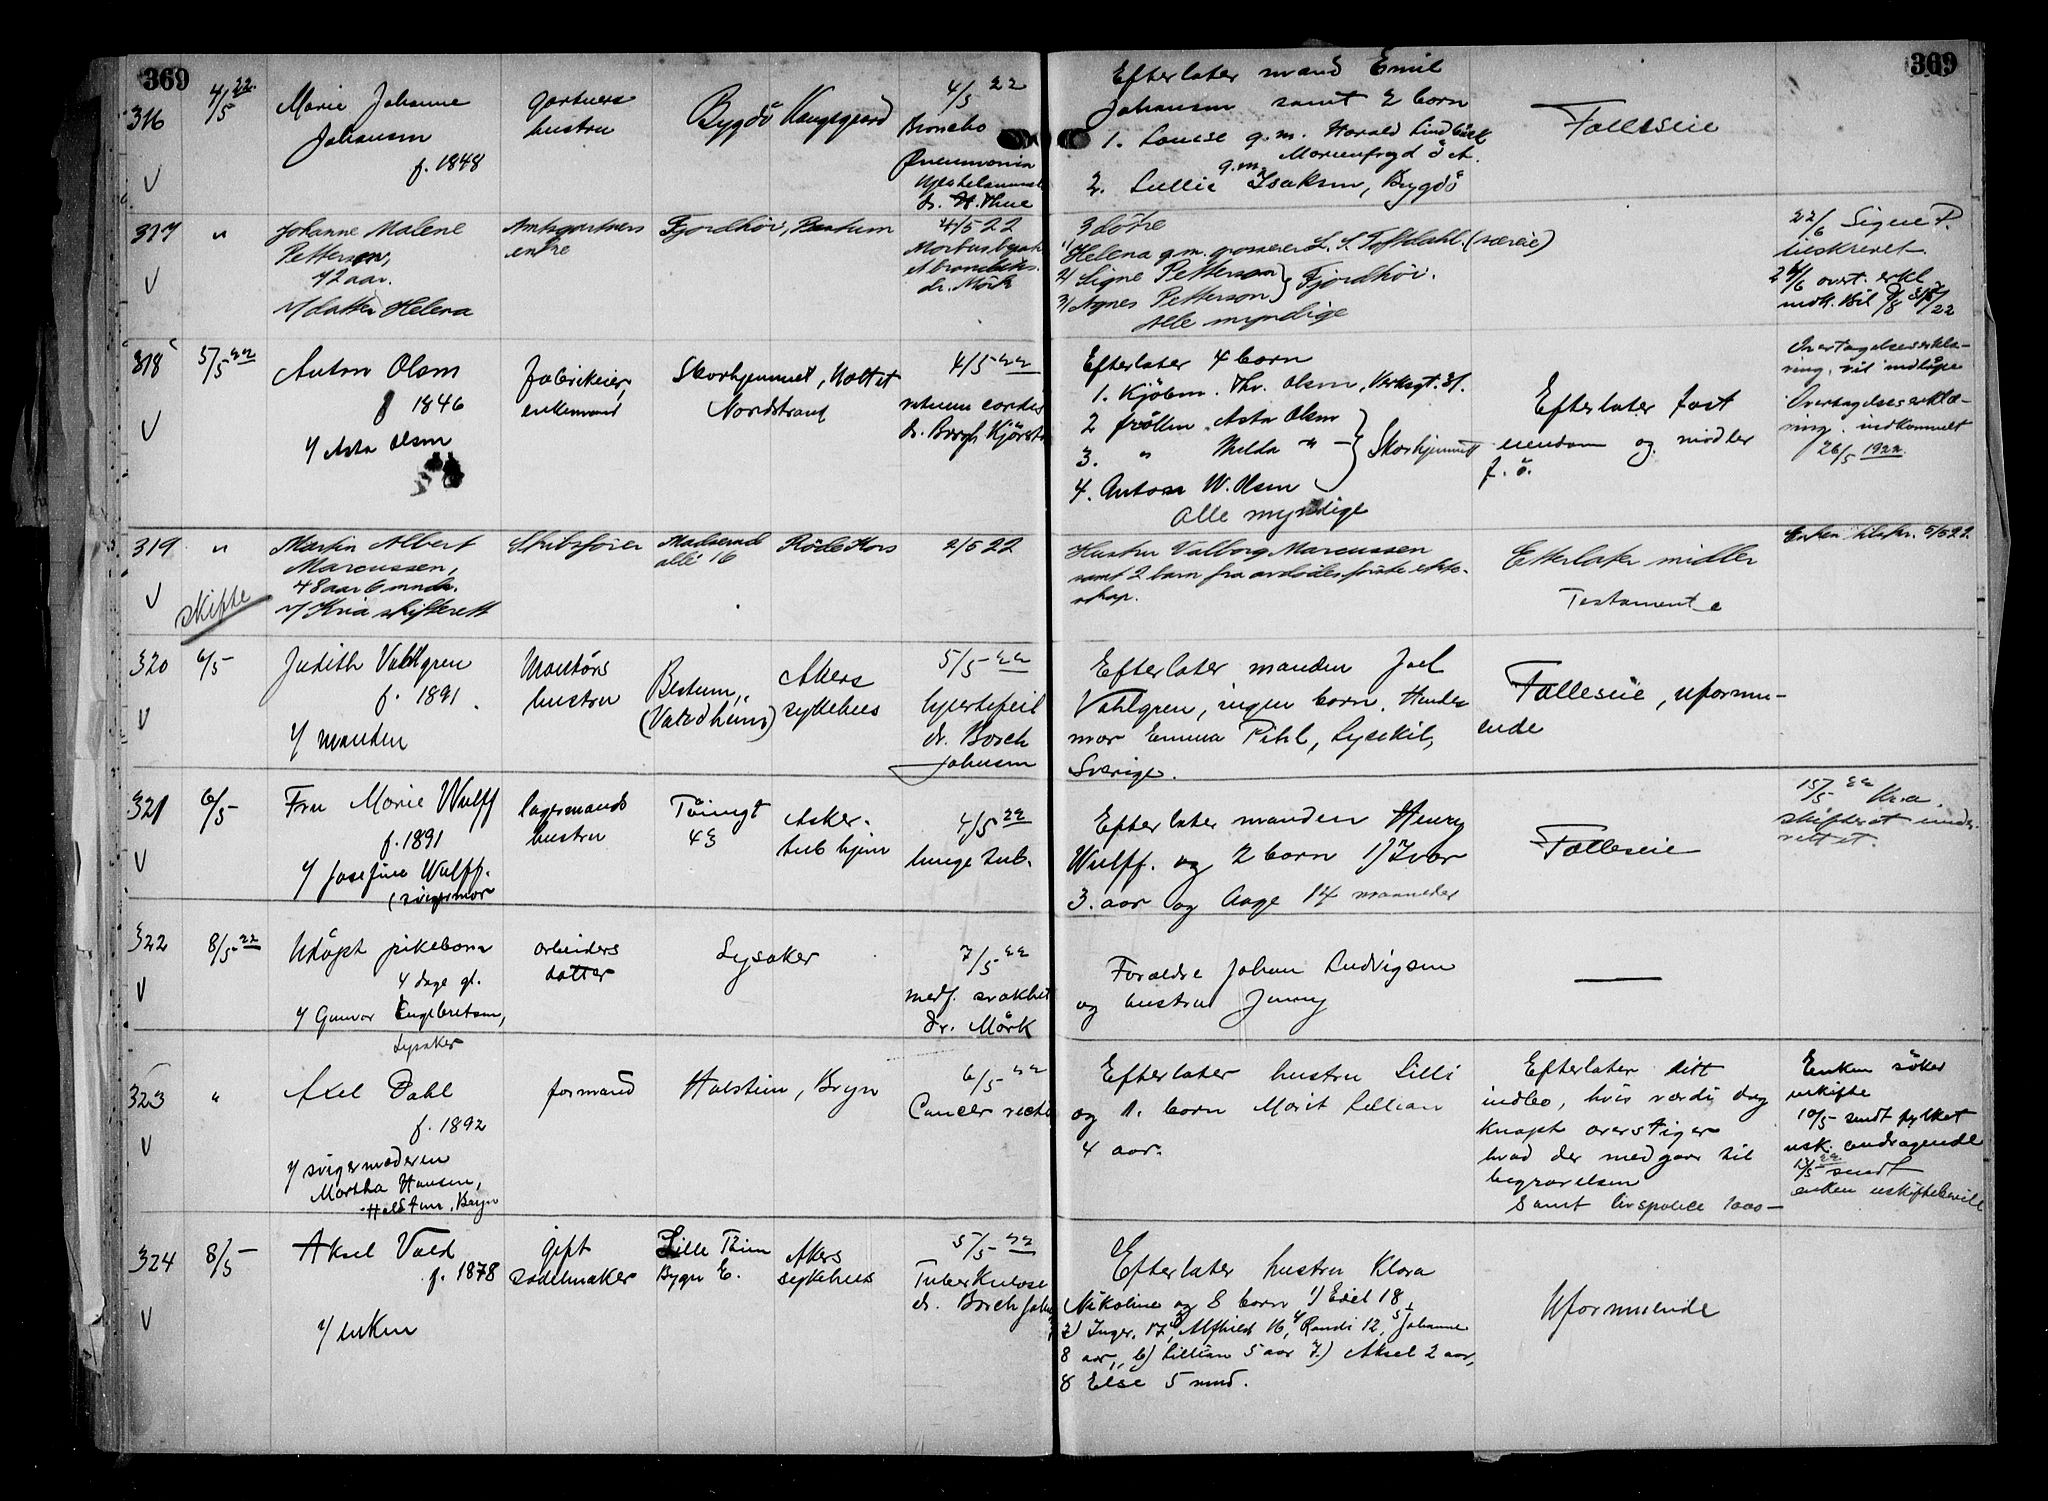 369
369
316
4/5 22
Marie Johanne
Johansen
f. 1848
Gartners
hustru
Bygdö Kongsgaard
4/5 22
Broncho
Pneumonia
dr. H. Thue
Efterlater mand Emil
Johansen samt 2 born
1. Louise g.m. Harald Lindbäck
Marienfryd ö A.
g.m.
2. Lullie Isaksen, Bygdö
Fælleseie
317
"
Johanne Malene
Petterson,
72 aar.
v/ datter Helena
Amtsgartners
enke
Fjordhöi, Bestum
4/5 22
dr. Mörk
3 dötre
1) Helena g.m. grosserer L. S. Toftdahl. (særeie)
2) Signe Petterson } Fjordhöi.
3) Agnes Petterson
Alle myndige
22/6 Signe P.
tilskrevet
318
5/5 22
Anton Olsen
f 1846
v/ Asta Olsen
fabrikeier,
enkemand
Skovhjemmet, Holtet
Nordstrand
4/5 22
dr. Borgh. Kjörstad
Efterlater 4 born
1. Kjöbm. Thv. Olsen, Verksgt. 21.
2 fröken Asta Olsen
3. " Hilda " } Skovhjemmet
4. Anton W. Olsen
Alle myndige
Efterlater fast
eiendom og midler
f. ö.
Overtagelseserklæ-
ring. vil indlöpe
Overtagelseserklæ-
ring. indkommet
26/5 1922.
319
"
Skifte
Martin Albert
Marcussen,
48 aar 6 mnd.
v/ Kria skifterett
Skibsförer
Madserud
allé 16
Röde Kors
2/5 22
Hustru Valborg Marcussen
samt 2 barn fra avdödes förste ekte-
skap.
Efterlater midler
Testamente
Enken tilskr. 5/5 22.
320
6/5
Judith Vahlgren
f. 1891.
v/ manden
Montörs
hustru
Bestum,
(Valdheim)
Akers
sykehus
5/5 22
hjertefeil
dr. Borch
Johnsen
Efterlater manden Joel
Vahlgren, ingen born. Hendes
mor Emma Pihl, Lysekil,
Sverige.
Fælleseie, uformu-
ende
321
6/5
Fru Marie Wulff
f. 1891
v/ Josefine Wulff.
(svigermor
lagermands
hustru
Töiengt
43
Asker.
tub hjem
4/5 22
lunge tub.
Efterlater manden Henry
Wulff. og 2 born 1) Ivar
3. aar og Aage 14 maaneder
Fælleseie
15/5 22 Kra.
skifteret under-
rettet.
322
8/5 22
Udöpt pikebarn
4 dage gl.
v/ Gunvor Engebretsen,
Lysaker
arbeiders
datter
Lysaker
7/5 22
medf. svakhet
dr. Mörk
Foraldre Johan Ludvigsen
og hustru Jenny
—
323
"
Axel Dahl
f. 1892
v/ svigermoderen
Martha Hansen,
Holstein, Bryn
formand
Holstein, Bryn
6/5 22
Cancer recti
Efterlater hustru Lilli
og 1. born Marit Lillian
4 aar.
Efterlater litt
indbo, hvis værdi dog
knapt overstiger
hvad der medgaar til
begravelsen
Samt livspolice 1000—
Enken söker
uskifte
10/5 sendt fylket
usk. andragende
17/5 22 sendt
enken uskiftebevill
324
8/5
Aksel Vold
f. 1878
v/ enken
gift
sadelmaker
Lille Thien
Bygn E.
Akers
sykehus
5/5 22
Tuberkulose
dr. Borch Johns
Efterlater hustru Klara
Nikoline og 8 born 1) Edel 18
2) Inger. 17, 3 Alfhild 16, 4 Randi 12, 5 Johanne
8 aar, 6) Lillian 5 aar 7.) Aksel 2 aar,
8 Else 5 mnd.
Uformuende